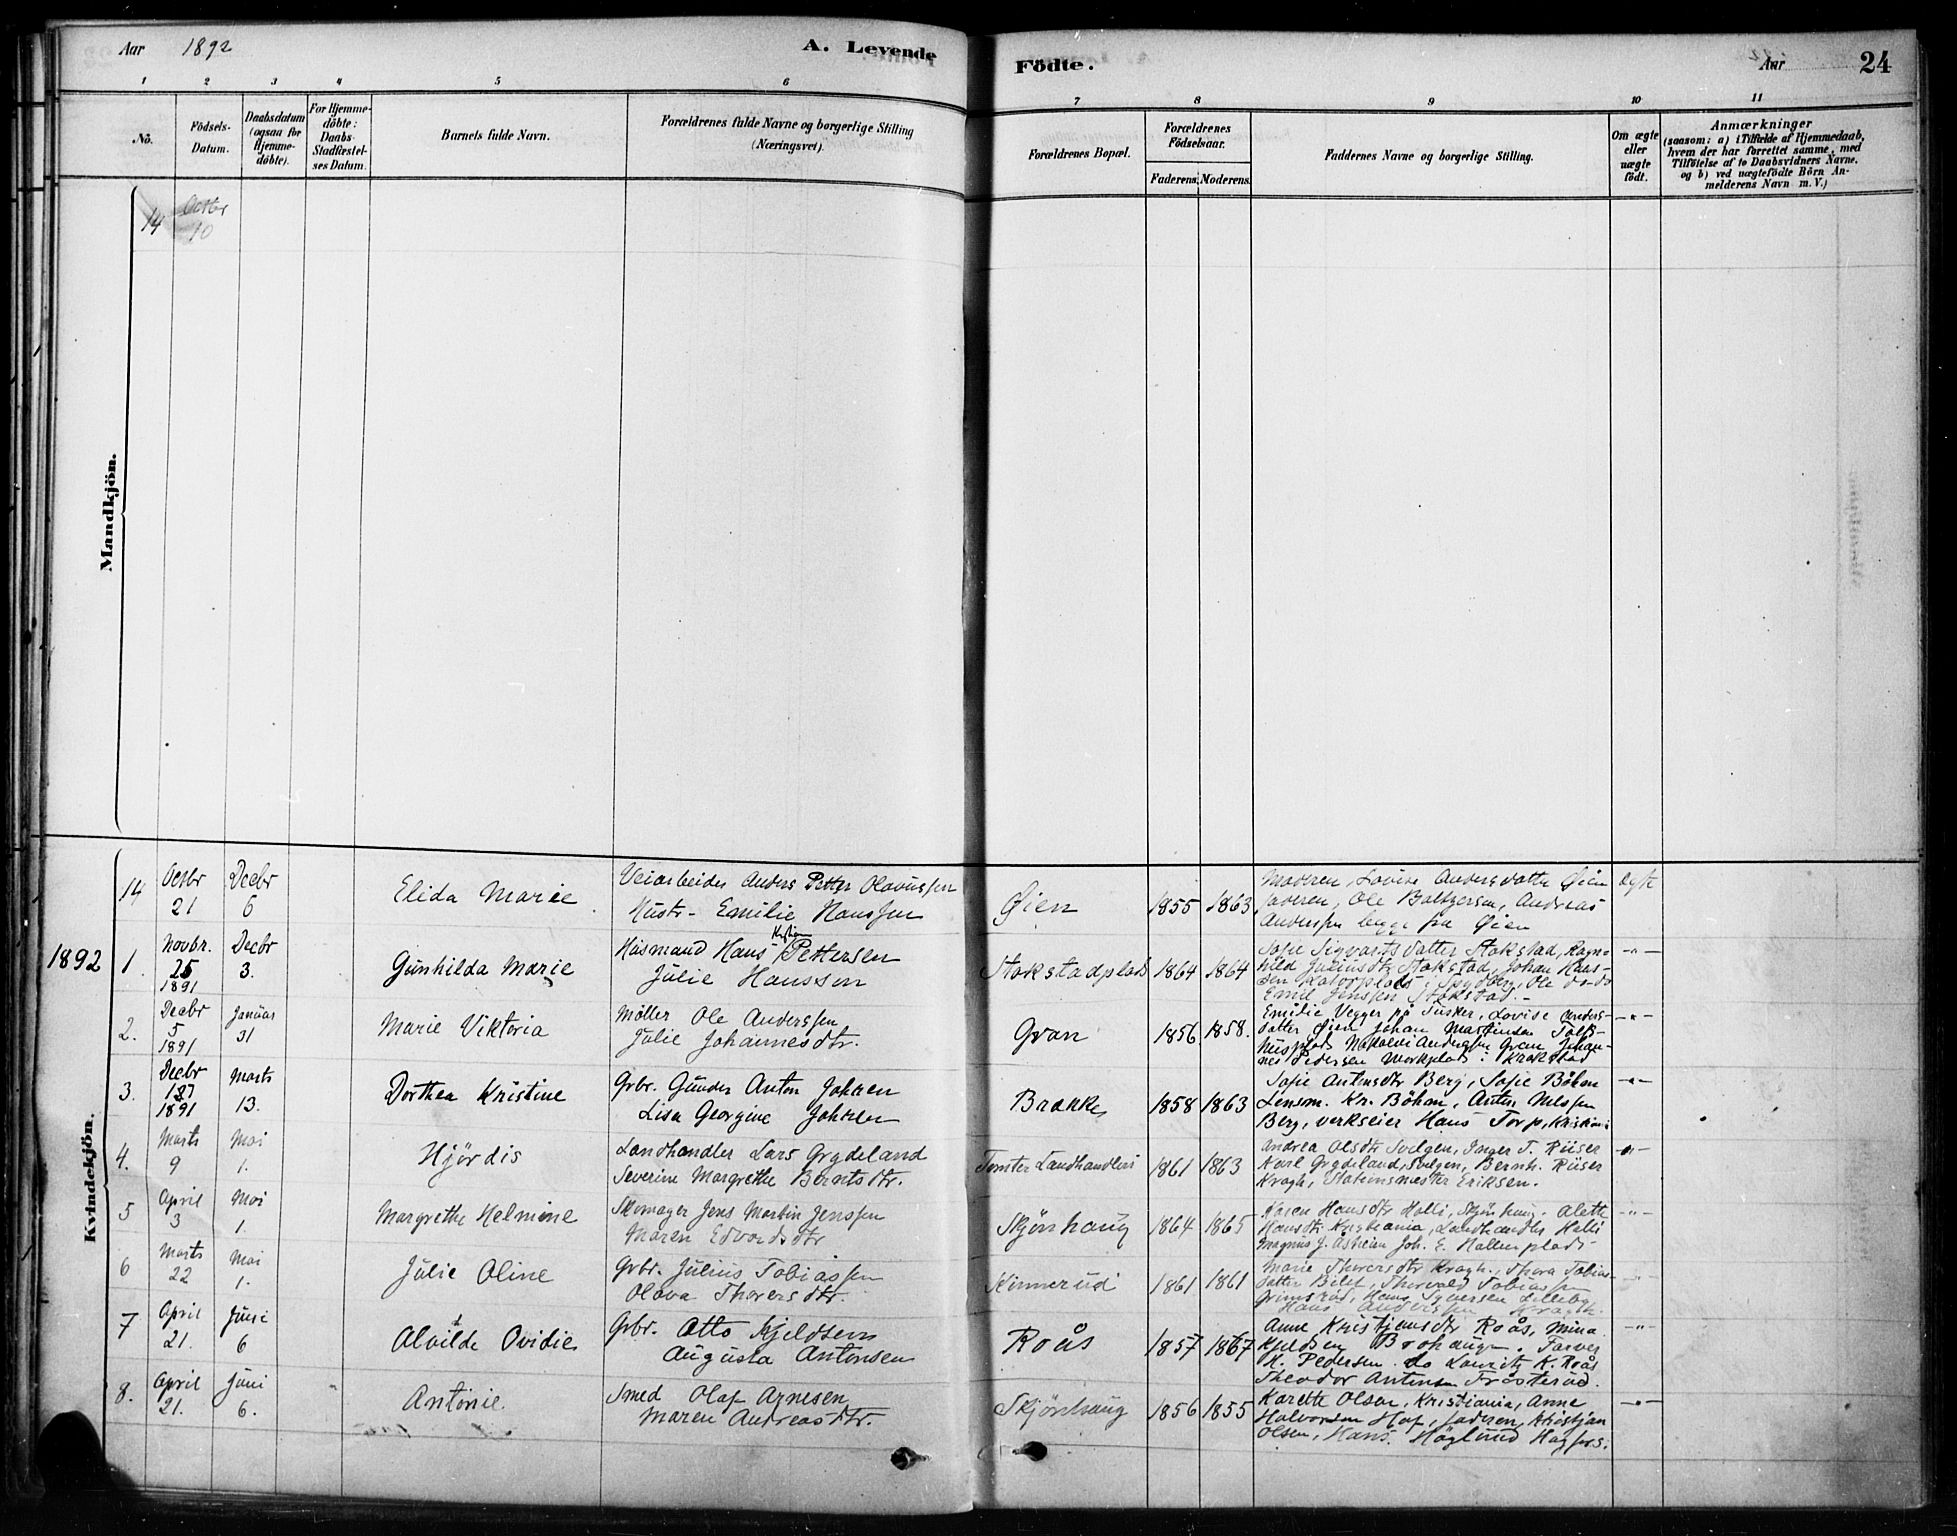 Aar 1892 A. Levende Födte. Aar 24
1 2 3 4 5 6 7 8 9 10 11
No.
Födsels-Datum.
Daabsdatum (ogsaa for Hjemme-döbte).
For Hjemme-döbte: Daabs-Stadfæstel-ses Datum.
Barnets fulde Navn.
Forældrenes fulde Navne og borgerlige Stilling (Næringsvei).
Forældrenes Bopæl.
Forældrenes Födselsaar.
Faderens. Moderens.
Faddernes Navne og borgerlige Stilling.
Om ægte eller uægte födt.
Anmærkninger
(saasom: a) i Tilfælde af Hjemmedaab,
hvem der har forrettet samme, med
Tilföielse af to Daabsvidners Navne,
og b) ved uægtefödte Börn An-
melderens Navn m. V.)
Mandkjön.
14 Octbr 10
Kvindekjön.
14 Octbr 21 Decbr 6 Elida Marie
Veiarbeider Anders Petter Olavussen
Hustr- Emilie Hanssen
Øien 1855 1863
Maderen, Lovise Andersdatter Øien
faderen, Ole Baltzersen, Andreas
Anderssen begge fra Øien
ægte
1892 1. Novbr. 25 1891 Decbr 3. Gunhilda Marie
Husmand Hans Kristian Pettersen
Julie Hansson
Stokstadplads 1864 1864
Sofie Sigvartsdatter Stokstad, Ragn-
hild Juliusdtr Stokstad, Johan Hans-
Emil Jenssen Stokstad.-
-"-
2. Decbr 5 1891 Januar 31 Marie Viktoria
Møller Ole Anderssen
Julie Johannesdtr.
Gran 1856 1858.
Emilie Vegger på Tusker, Lovise Anders-
datter Øien Johan Martinsen
nes Pedersen i Krakstad
-"-
3. Decbr 27 1891 Marts 13. Dorthea Kristine
Grbr. Gunder Anton Johren
Lisa Georgine Johren
Brakke 1858 1863
Sofie Antonsdtr Berg, Sofie Bøhan
Lensm. Kr. Bøhan, Anton Nilssen
Berg, verkseier Hans Torp, Kristiania
-"-
4. Marts 9 Mai 1. Hjördis
Landhandler Lars Grydeland
Severine Margrethe Berntsdtr.
Tomter Landhandleri 1861 1863
Andrea Olsdtr Solgen, Inger T. Riiser
Karl Grydeland, Solgen, Bernh. Riiser
Kragh, Stationsmester Eriksen.
-"-
5 April 3 Mai 1. Margrethe Helmine
Skomager Jens Martin Jenssen
Maren Edvardsdtr
Skjønhaug 1864 1865
Karen Hansdtr Holli, Skjønhaug. Alette
Hansdtr Kristiania, Landhandler Holli
Magnus J. Askeim Joh. E. Hallenplads
-"-
6 Marts 22 Mai 1. Julie Oline
Grbr. Julius Tobiassen
Olava Thorersdtr.
Kinnerud 1861 1861
Marie Thorersdtr Kragh. Thora Tobias-
datter Bilet, Thorvald Tobiassen
Grimsrud, Hans Syversen Lilleby
Hans Anderssen Kragh.
-"-
7 April 21. Juni 6 Alvilde Ovidie
Grbr. Otto Kjeldsen
Augusta Antonsen
Roås 1857 1867
Anne Kristjansdtr Roås, Mina
Kjeldsen Brohaug. Farver
K. Pedersen. do Lauritz K. Roås
Theodor Antonsen Frøsterud.
-"-
8. April 21. Juni 6. Antonie.
Smed Olaf Arnesen
Maren Andreasdtr.
Skjønhaug 1856 1855
Karethe Olsen, Kristiania, Anne
Halvorsen Hof, faderen, Kristjan
Olsen, Hans Höglund Hagfors.
-"-